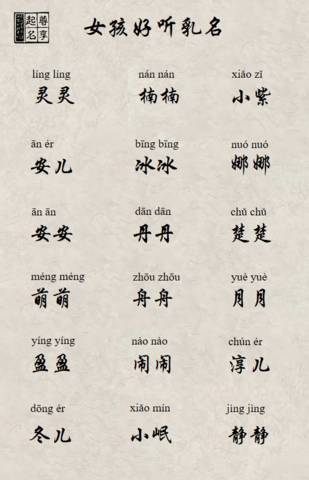 尊享起名
女孩好听乳名
líng líng nán nán xiǎo zǐ
灵灵 楠楠 小紫
ān ér bīng bīng nuó nuó
安儿 冰冰 娜娜
ān ān dān dān chǔ chǔ
安安 丹丹 楚楚
méng méng zhōu zhōu yuè yuè
萌萌 舟舟 月月
yíng yíng nào nào chún ér
盈盈 闹闹 淳儿
dōng ér xiǎo mín jìng jìng
冬儿 小岷 静静